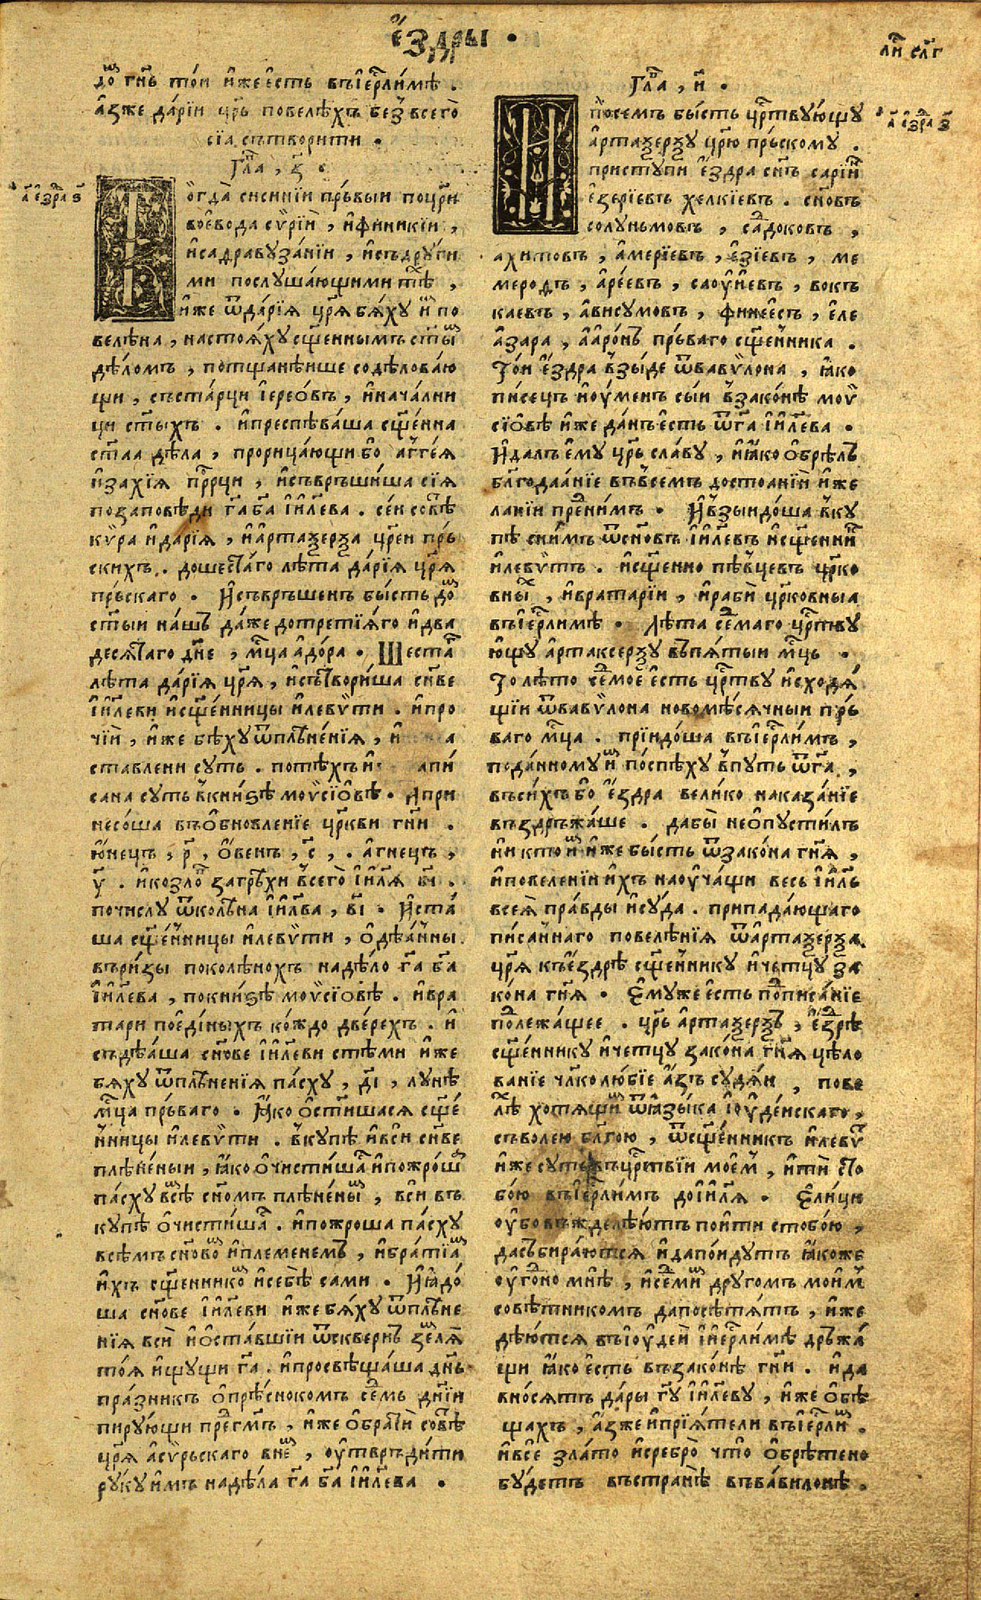 е҆́здры ·
ли́ сл҃г
до́ гн҇ь то́и и҆́же є҆́сть въ і҆ерⷭ҇ли́мѣ .
а҆́зже да́рїи цр҃ь повелѣ́хъ беꙁ̾всего̀
сїѧ̀ сътвори́ти ·
Гла́ , з҃ ·
а҃ є҆́зра ѕ҃
Тогда̀ сиси́нїи пръ́выи поцр҃и
вое҆во́да сѷрі́и , и҆финики́и ,
и҆садравꙋза́нїи , и҆съдрꙋги́
ми послꙋшающими тѣ́ ,
и҆́же ѿда́рїѧ цр҃ѧ бѧ́хꙋ и҆̀ по
велѣ́на , настоѧ́хꙋ сщ҃е́ннымъ ст҃ы́
дѣ́ломъ , потщанѣ́ише содѣ́ловаю
щи , съста́рци і҆ере́ѡвъ , и҆нача́лни
ци ст҃ы́хъ . и҆преспѣва́ша сщ҃е́нна
ст҃аа дѣ́ла , прорица́ющи бо а҆гге́ѧ
и҆заха́рїѧ прⷪ҇рци , и҆съврьши́ша сїѧ̀
позаповѣ́ди гⷭ҇а б҃а і҆и҃лева . се́и совѣ́
кѷ́ра и҆да́рїѧ , и҆а҆ртаѯе́рѯа цр҃еи пръ́
скихъ . до шеста́го лѣ́та да́рїѧ цр҃ѧ
пръ́скаго · И҆съврьше́нъ бы́сть до́
ст҃ыи на́шъ да́же до третїѧ́го и҆два
десѧ́таго дн҃е , мⷭ҇ца а҆до́ра · Шеста́
лѣ́та да́рїѧ цр҃ѧ , и҆сътвори́ша сн҃ве
і҆и҃леви и҆сщ҃е́нницы и҆левѷ́ти . и҆про
чїи , и҆́же бѣ́хꙋ ѿплѣне́нїѧ , и҆ а
ставлени сꙋть . потѣ́хъ и҆ апи́
сана сꙋть в̾кни́ѕѣ моѷсїо́вѣ · А при
несо́ша въ ѡ҆бновле́нїе цр҃кви гн҃и .
ю҆́нецъ , р҃ , ѻ҆́венъ , с҃ , . а҆́гнецъ ,
у҃ . и҆козло́ загрѣ́хи в̾сего̀ і҆и҃лѧ в҃і .
почислꙋ̀ ѿколѣ́на і҆и҃лва , в҃і · И҆ста́
ша сщ҃е́нницы и҆левѷ́ти , ѡ҆дѣа́нны
въ ри́зы поколѣ́нохъ надѣ́ло гⷭ҇а б҃а
і҆и҃лева , покни́ѕѣ моѷсїо́вѣ . и҆вра
тари пое҆ди́ныхъ ко́ждо две́рехъ . и҆
съдѣ́аша сн҃ове і҆и҃леви стѣ́ми и҆́же
бѧ́хꙋ ѿплѣне́нїѧ па́схꙋ , д҃і , лꙋнѣ̀
мⷭ҇ца пръ́ваго · Ꙗ҆́ко ѡ҆ст҃и́шасѧ сщ҃е́
нницы и҆левѷ́ти . в̾кꙋ́пѣ и҆вси̑ сн҃ве
плѣне́ныи , ꙗ҆́ко ѡ҆чи́стиша и҆пожро́ш
па́схꙋ всѣ̀ сн҃омъ плѣне́ны , вси̑ въ
кꙋ́пѣ ѡ҆чи́стиша . и҆пожро́ша па́схꙋ
всѣ́мъ сн҃ово̀ и҆племене́мъ , и҆бра́тїа
и҆́хъ сщ҃е́ннико и҆себѣ̀ са́ми · И҆ꙗ҆до́
ша сн҃ове і҆и҃леви и҆́же бѧ́хꙋ ѿплѣне
нїѧ вси̑ и҆ѡ҆ста́вшїи ѿскве́рнъ землѧ̀
то́ѧ и҆щꙋщи гⷭ҇а . и҆просвѣща́ша дн҃ь
пра́зникъ ѡ҆прѣ́снокомъ се́мь дн҃іи
пирꙋ́ющи пре́гмъ , и҆́же ѡ҆брати̑ совѣ́
цр҃ѧ а҆сѷ́рьскаго вни́е , ꙋ҆твръди́ти
рꙋ́кꙋ и҆́мъ надѣ́ла гⷭ҇а б҃а і҆и҃лева ·
Гла́ , и҃ ·
а҃ є҆́зра з҃
Ипосе́мъ бы́сть црⷭ҇твꙋ́ющꙋ
а҆ртаѯе́рѯꙋ цр҃ю прь́скомꙋ .
пристꙋпѝ е҆́здра сн҃ъ сарі́и
є҆зері́евъ хелкі́евъ . сн҃овъ
солꙋ́ньмовъ , садо́ковъ ,
ахи́товъ , а҆мерїевъ , є҆зі́евъ , ме
меродъ , а҆ре́евъ , саоу҆и́евъ , вокъ
каевъ , а҆висꙋмовъ , фине́есъ , є҆ле
а҆́зара , а҆аро́нъ пръ́ваго сщ҃е́нника .
То́и е҆́здра взы́де ѿвавѷло́на , ꙗ҆́ко
писе́цъ и҆ꙋ҆́менъ сы́и в̾зако́нѣ моѷ
сїо́вѣ и҆́же да́нъ є҆́сть ѿгⷭ҇а і҆и҃лева ·
И҆да́лъ є҆мꙋ̀ цр҃ь сла́вꙋ , и҆ꙗ҆́ко ѡ҆брѣ́лъ
бл҃года́нїе въ все́мъ достоа́нїи и҆́же
ла́нїи пре́нимъ · И҆взыидо́ша в̾кꙋ
пѣ сни́мъ ѿсн҃овъ і҆и҃левъ и҆сщ҃е́нни́
и҆левѷ́тъ . и҆сщ҃е́нно пѣвце́въ цр҃ко
вны́ , и҆врата́рїи , и҆рабѝ цр҃ко́вныа
въ і҆ерⷭ҇ли́мѣ · Лѣ́та се́дмаго црⷭ҇твꙋ
ю҆́щꙋ а҆ртаксе́рѯꙋ въпѧ́тыи мⷭ҇ць ·
То лѣ́то се́дмое є҆́сть црⷭ҇твꙋ и҆сходѧ́
щїи ѿвавѷло́на новомѣ́сѧчныи пръ́
ваго мⷭ҇ца . прїидо́ша въ і҆ерⷭ҇ли́мъ ,
пода́нномꙋ и҆̀ поспѣ́хꙋ в̾пꙋть ѿгⷭ҇а ,
въси́хъ бо е҆́здра вели́ко наказа́нїе
въздръжа́ше . дабы̀ неѡ҆пꙋсти́лъ
ни кто̀ и҆́же бы́сть ѿзако́на гн҃ѧ ,
и҆повеле́нїи и҆́хъ наоу҆ча́щи весь і҆и҃ль
всеѧ̀ пра́вды и҆сꙋда̀ . припада́ющаго
пи́саннаго повелѣ́нїѧ ѿа҆ртаѯе́рѯа
цр҃ѧ къ е҆́здрѣ сщ҃е́нникꙋ и҆четцꙋ̀ за
ко́на гн҃ѧ · Є҆мꙋже є҆́сть пописа́нїе
полежа́щее . цр҃ь а҆ртаѯе́рѯъ , е҆́зрѣ
сщ҃е́нникꙋ и҆четцꙋ̀ зако́на гн҃ѧ цѣло
ва́нїе чл҃колю́бїе а҆́зъ сꙋдѧ́и , пове
лѣ̀ хотѧ́щи ѿꙗ҆зы́ка і҆ꙋде́искаго ,
съво́лею бл҃го́ю , ѿсщ҃е́нникъ и҆левѷ́
и҆́же сꙋть въ црⷭ҇твїи мое́м , и҆тѝ сто
бо́ю въ і҆ерⷭ҇ли́мъ до і҆и҃лѧ · Є҆ли́ци
оу҆́бо въжделѣ́ютъ пои́ти стобо́ю ,
дасъбира́ютсѧ и҆дапо́идꙋтъ ꙗ҆́коже
оу҆го́но мнѣ̀ , и҆се́дми дрꙋго́мъ мои́м
совѣ́тникомъ дапосѣтѧ́тъ , и҆́же
дѣ́ютсѧ въ і҆ꙋде́и и҆і҆ерⷭ҇ли́мѣ дръжа́
щи ꙗ҆́ко є҆́сть въ зако́нѣ гн҃и . и҆да
вно́сѧтъ да́ры гⷭ҇ꙋ і҆и҃левꙋ , и҆́же ѡ҆бѣ
ща́хъ , а҆́зже и҆прїѧ́тели въ і҆ерⷭ҇ли́ .
и҆всѐ зла́то и҆сребро̀ что̀ ѡ҆брѣ́тено
бꙋ́детъ въ странѣ̀ въ ва́вилонѣ .